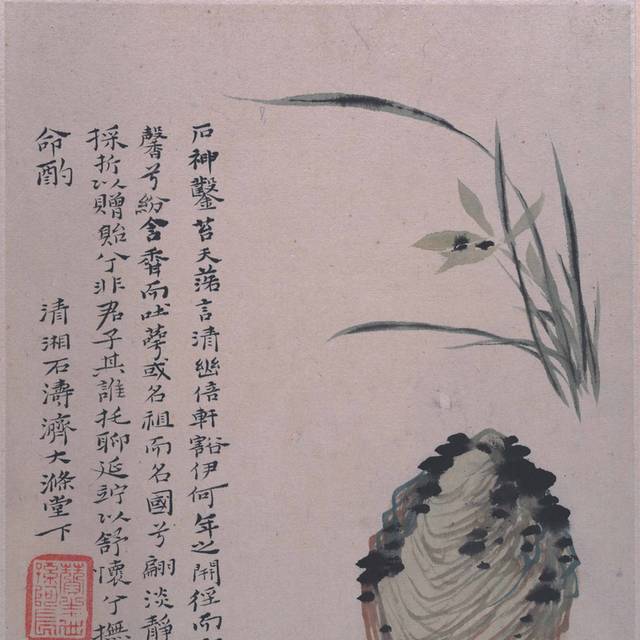 石神鑿苔天言清幽倍軒豁伊何年之開徑而
馨兮紛含齊而吐萼或名祖而名國兮翩淡靜
採折以贈貽兮非君子其誰托聊延竚以舒懷兮撫
命酌
清湘石濤濟大滌堂下